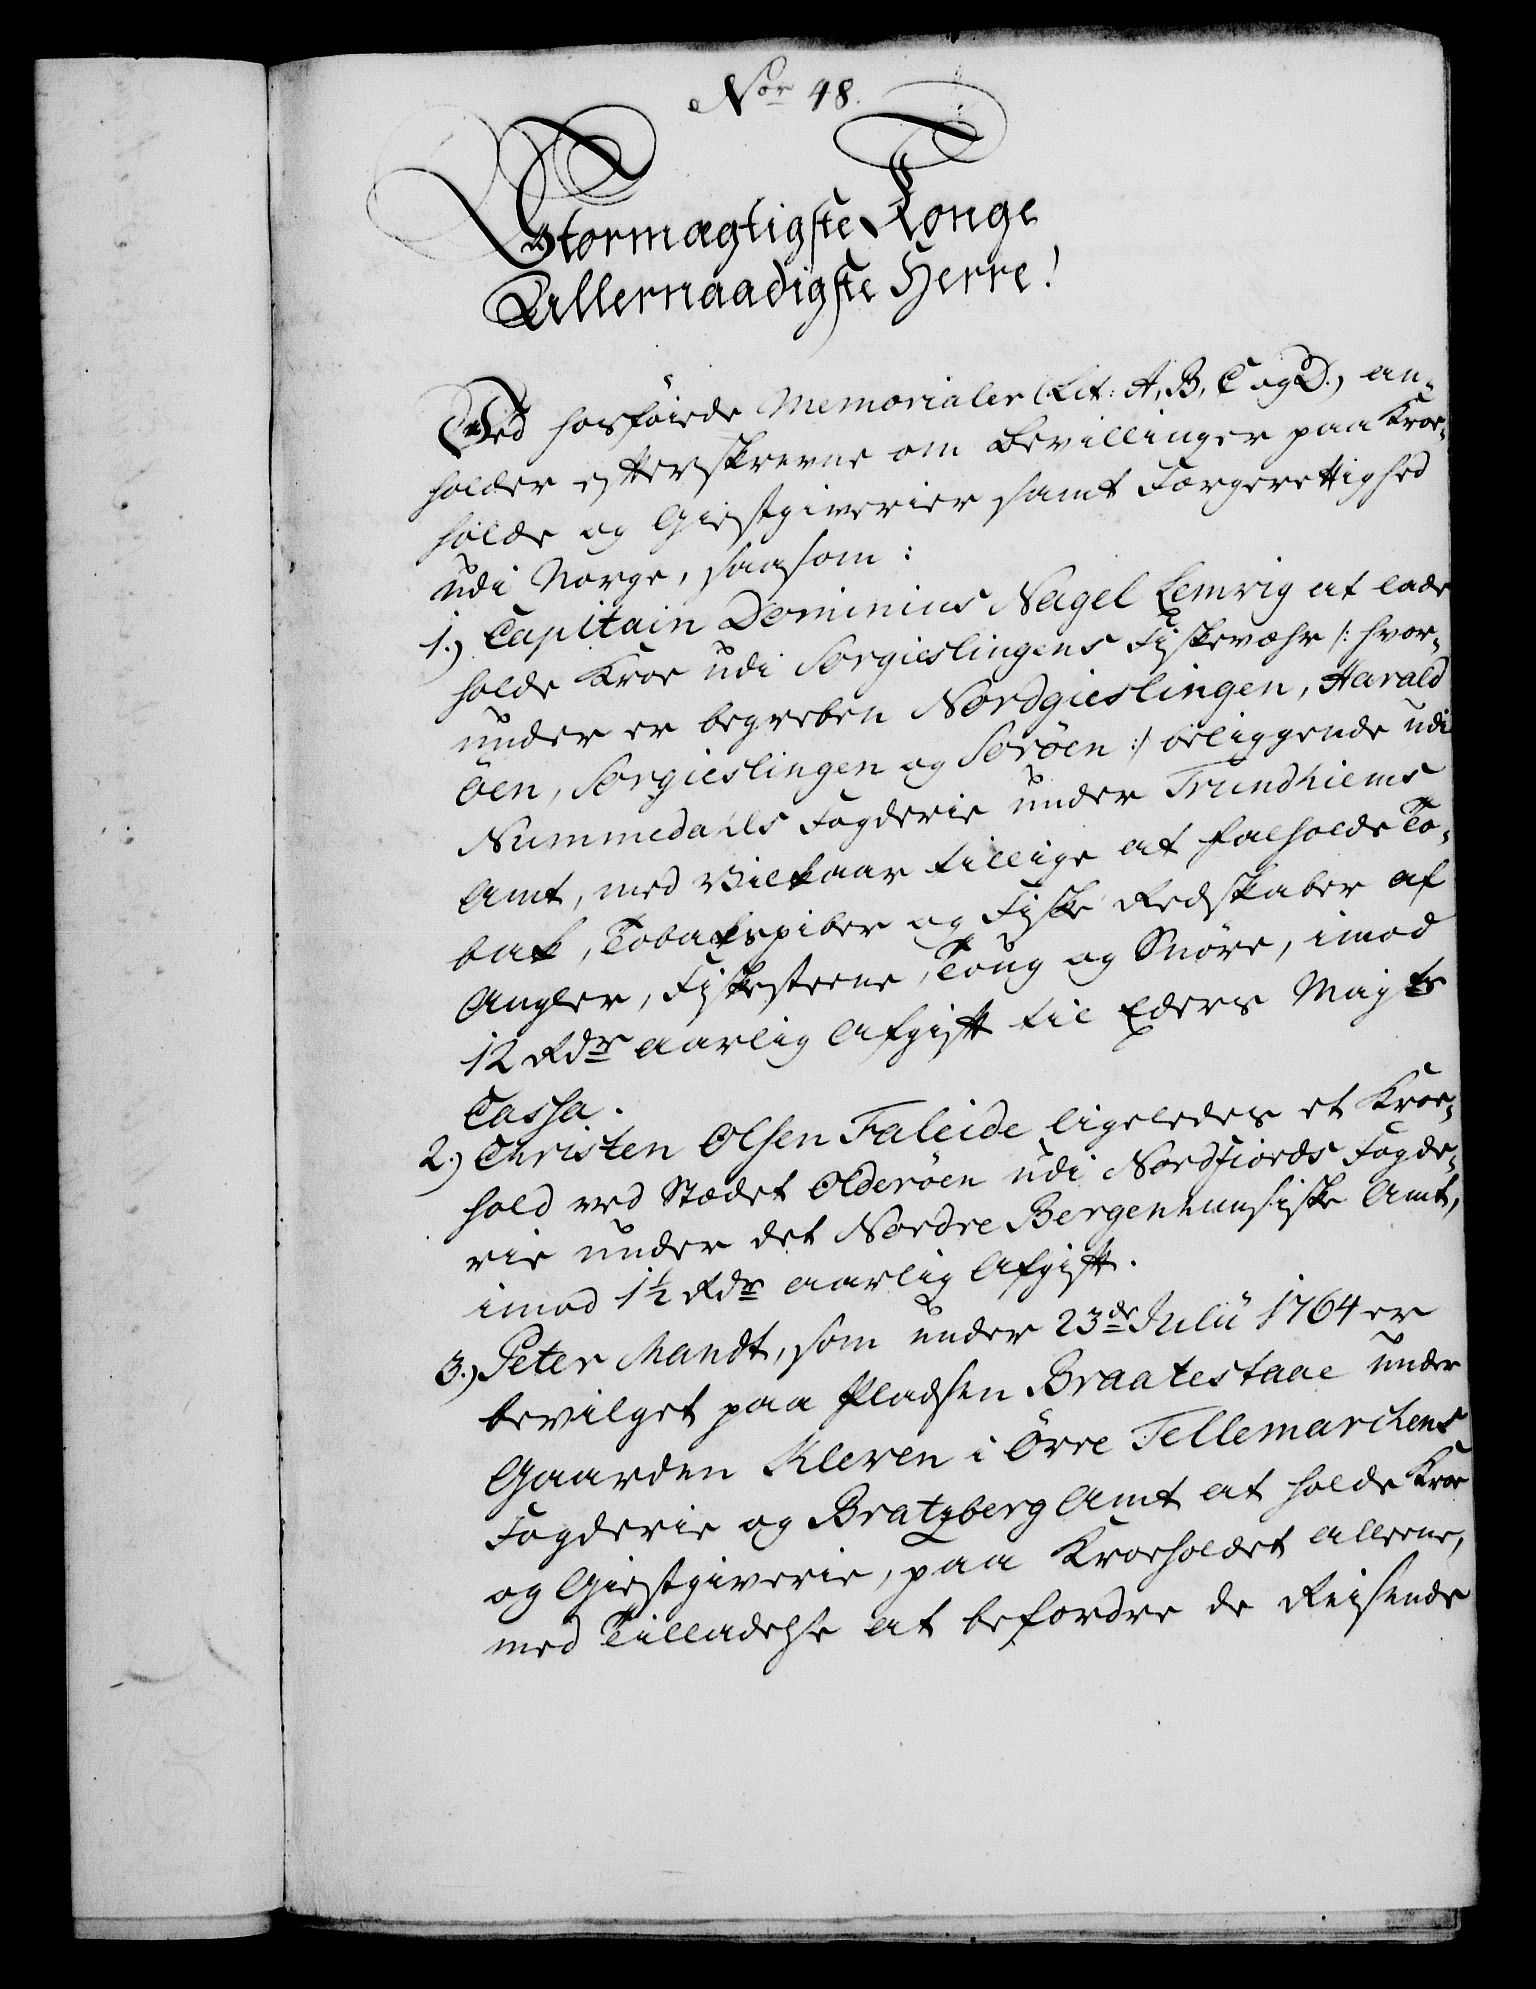 Nor 48.
Stormægtigste Konge
Allernaadigste Herre!
Ved hosføiede Memorialer (Lit: A, B, C og D.) an-
holder efterskrevne om Bevillinger paa Kroe-
holde og Giestgiverier samt Færgerettighed
udi Norge, saasom:
1.) Capitain Dominius Nagel Lemvig at lade
holde Kroe udi Sørgieslingens Fiskevæhr /: hvor-
under er begreben Nordgieslingen, Harald
öen, Sørgieslingen og Sørøen :/ beliggende udi
Nummedahls Fogderie under Trundhiems
Amt, med Vilkaar tillige at falholde To-
bak, Tobakspiber og Fiske Redskaber af
Angler, Fiskesteene, Toug og Snöre, imod
12 Rdr aarlig Afgift til Eders Mayts
Cassa.
2.) Christen Olsen Faleide ligeledes et Kroe-
hold ved Stædet Olderöen udi Nordfiords Fogde-
rie under det Nordre Bergenhuusiske Amt,
imod 1½ Rdr aarlig Afgift.
3.) Peter Mandt, som under 23de Julii 1764 er
bevilget paa Pladsen Braatestaae under
Gaarden Kleven i Övre Tellemarchens
Fogderie og Bratzberg Amt at holde Kroe
og Giestgiverie, paa Kroeholdet alleene,
med Tilladelse at befordre de Reisende